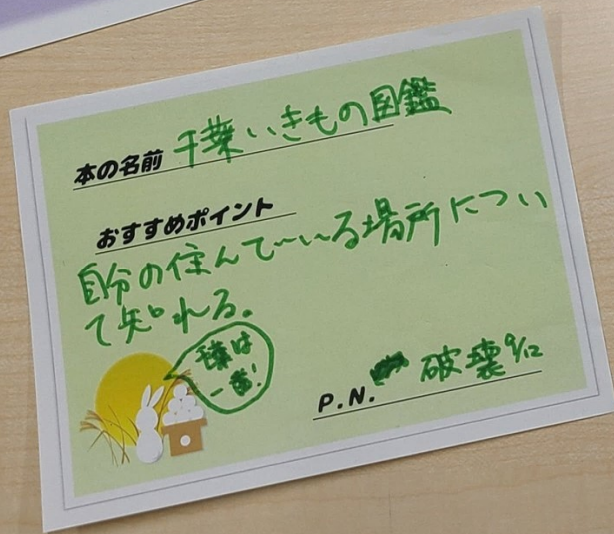 本の名前 千葉いきもの図鑑
おすすめポイント
自分の住んでいる場所につい
て知れる。
千葉は
一番!
P.N. 破壊 9/12